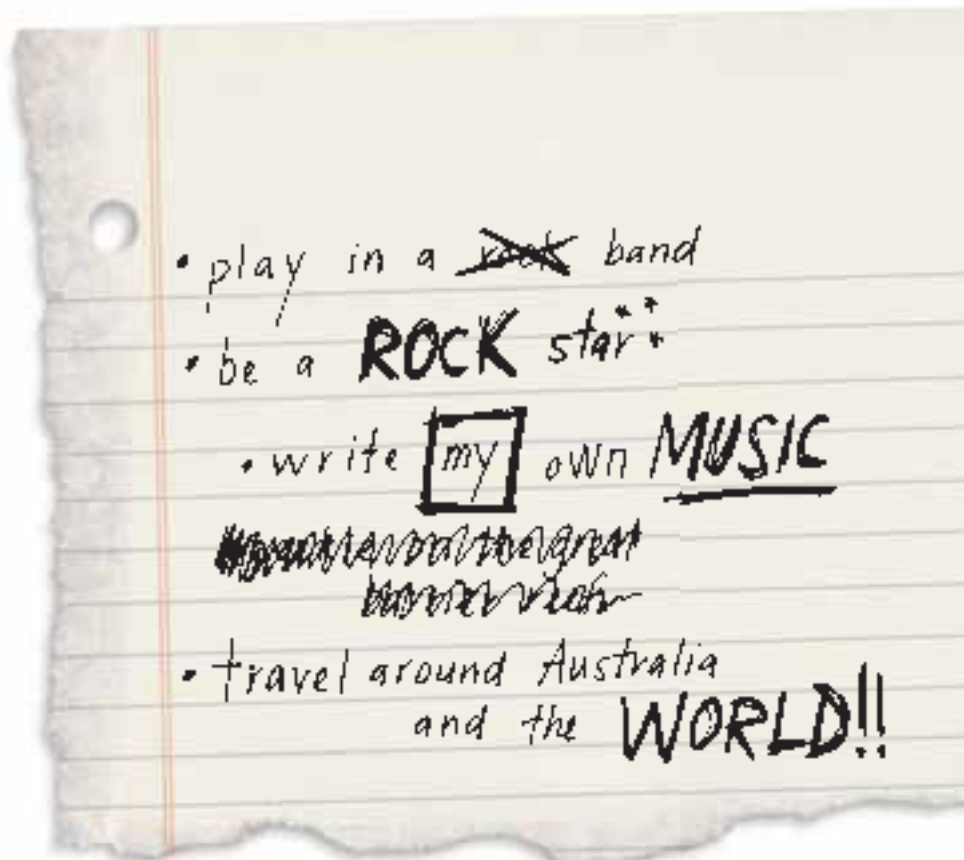 • play in a rock band
• be a ROCK star
• write my own MUSIC
great
• travel around Australia
and the WORLD!!